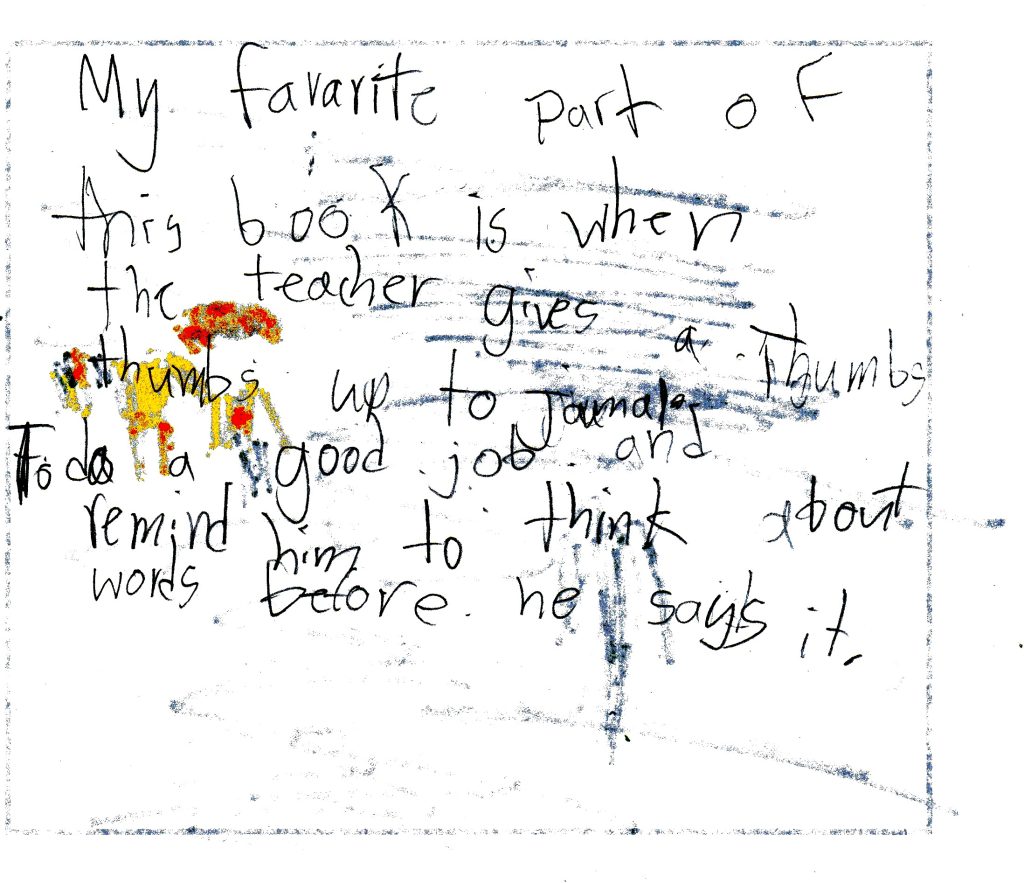 My favarite part of
this book is when
the teacher gives a Thumbs
thumbs up to
To do a good job and
remind him to think about
words before he says it.